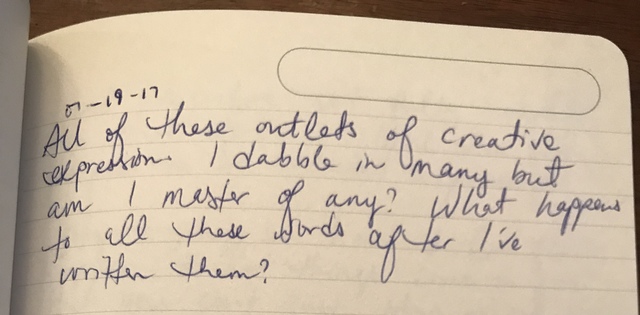 07-19-17
All of these outlets of creative
expression. I dabble in many but
am I master of any? What happens
to all these words after I've
written them?